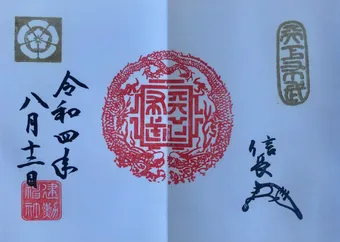 天下布武
信長
天下布武
令和四年
八月十二日
建勲神社